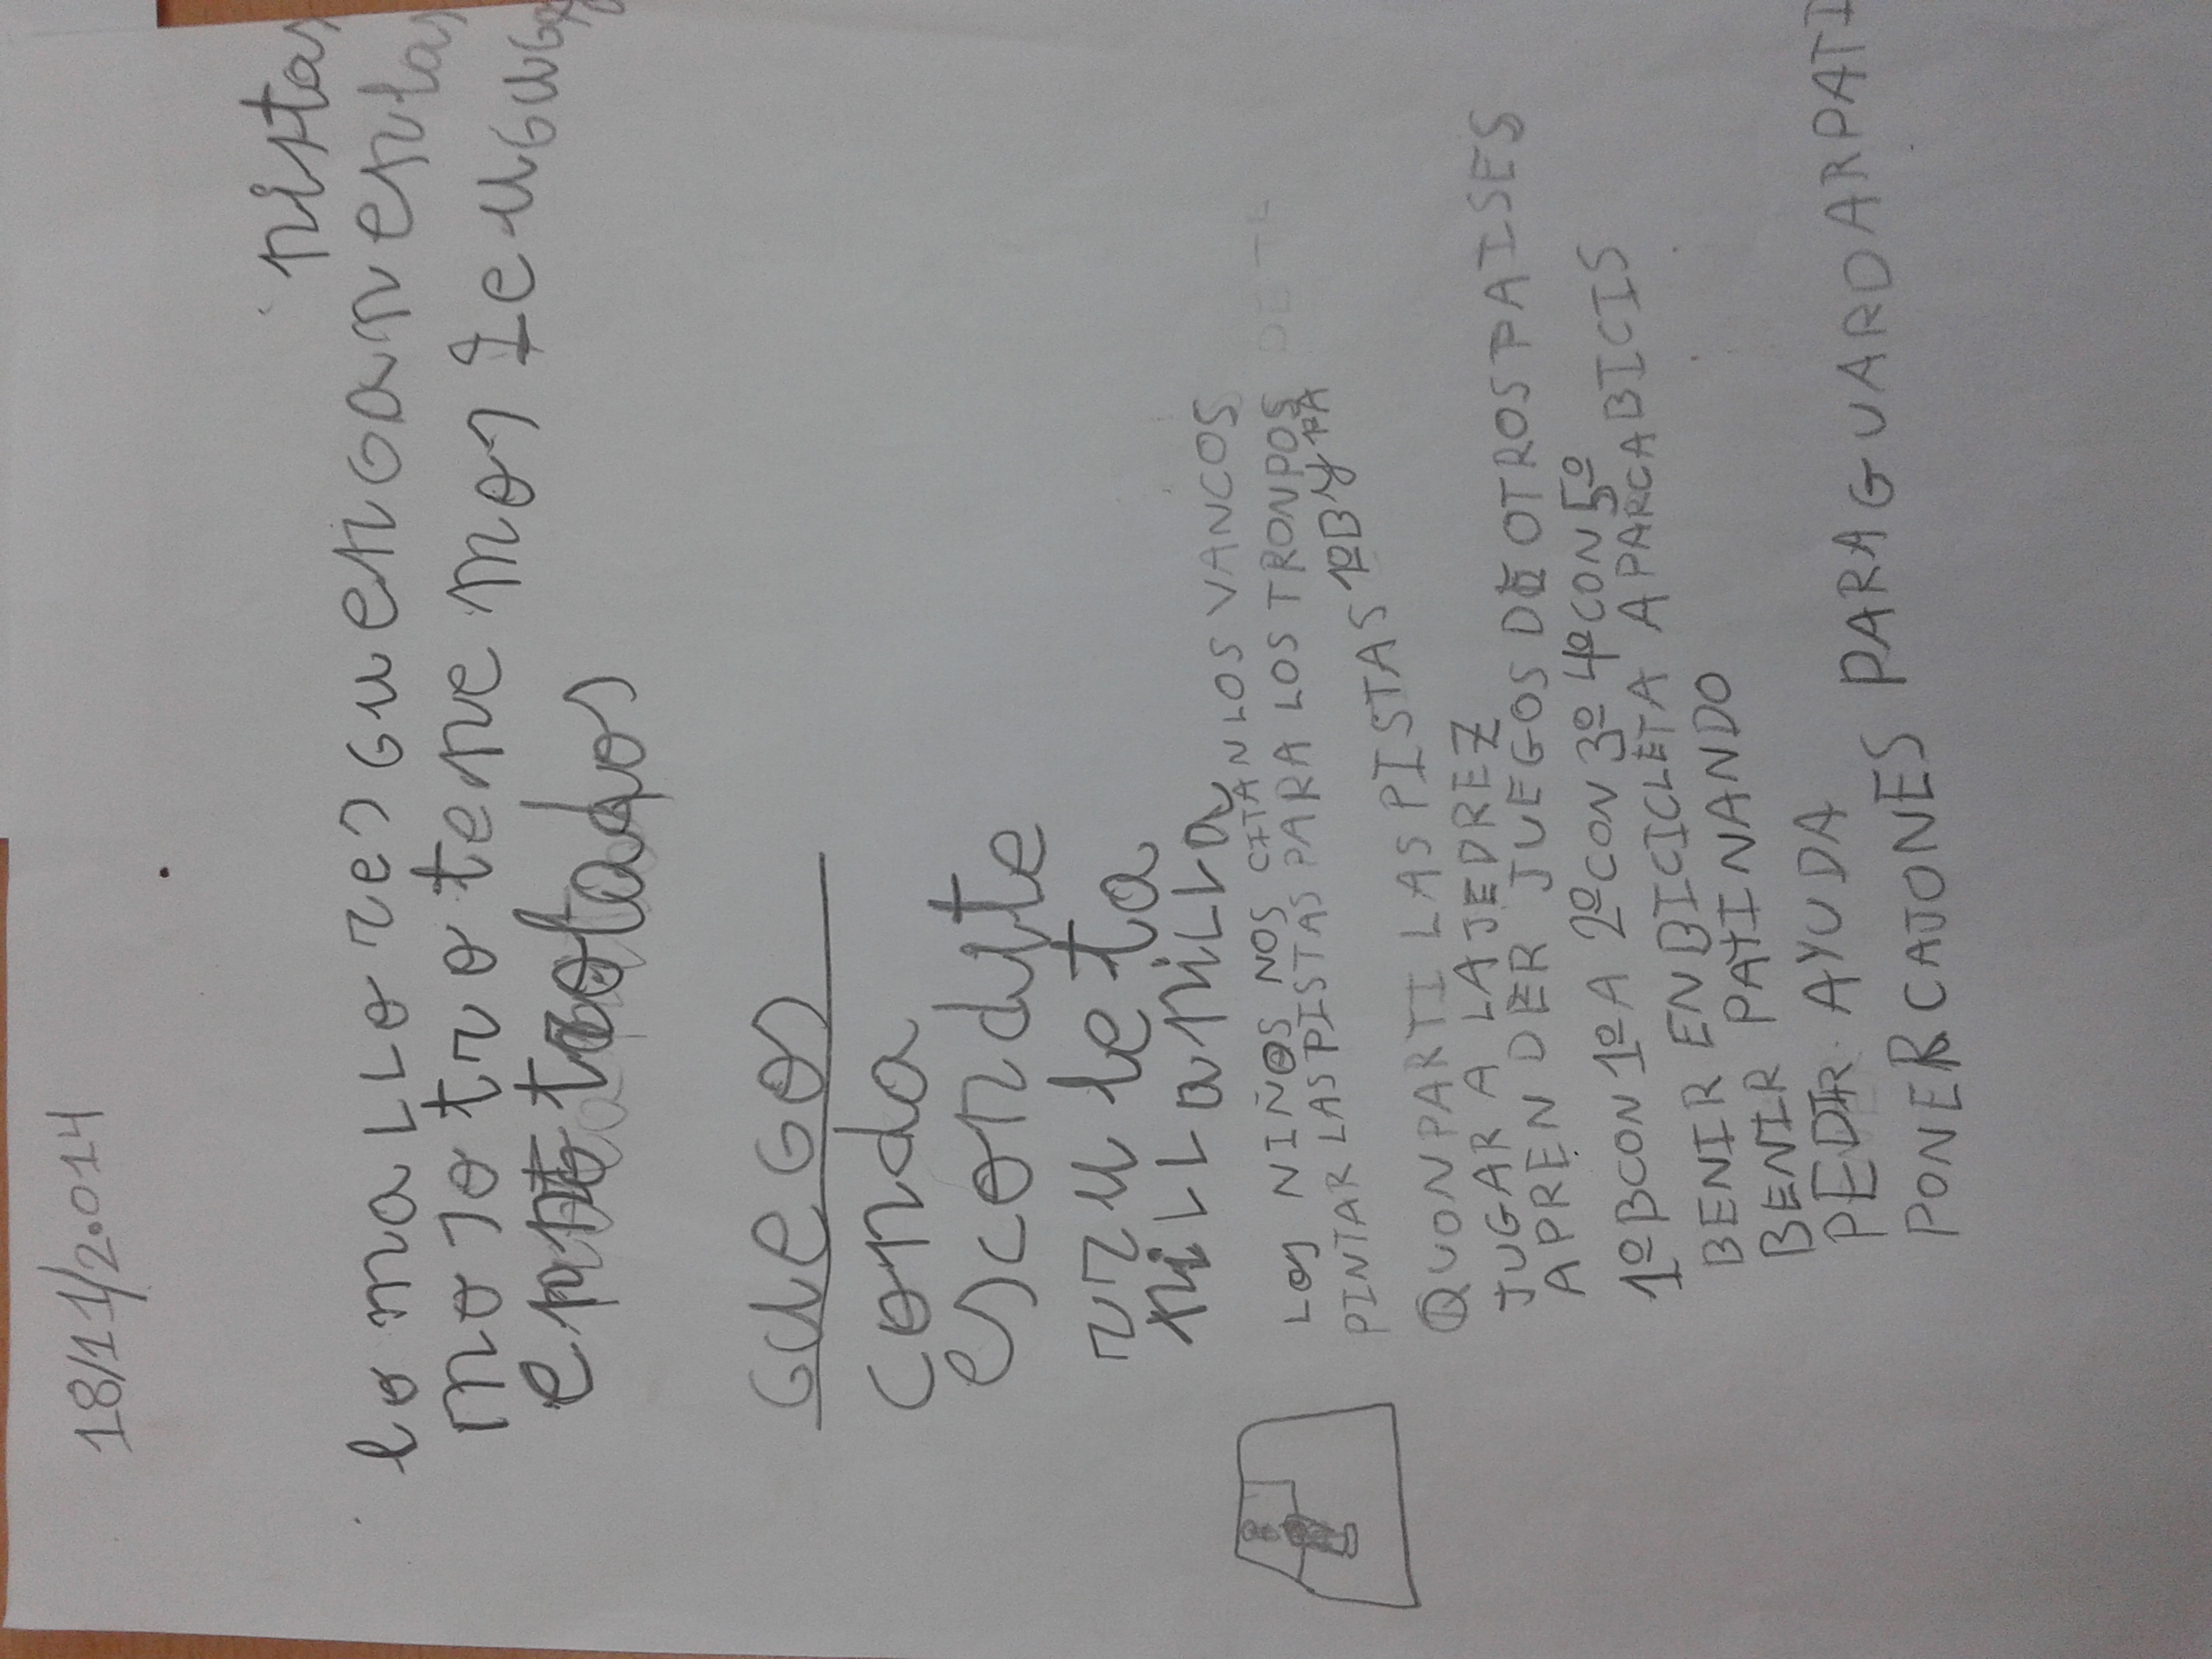 18/11/2.014
pistas
los mallores guengan en las
nosotros tenemos Ieugugag
enpatados
guegos
conda
escondyte
rruleta
millanilla
Los NIÑOS NOS CITAN LOS VANCOS
PINTAR LAS PISTAS PARA LOS TRONPOS DE
1ºB y PA
QUONPARTI LAS PISTAS
JUGAR A LAJEDREZ
APRENDER JUEGOS DE OTROS PAISES
1ºBCON 1ºA 2ºCON 3º 4ºCON 5º
BENIR ENBICICLETA APARCABICIS
BENIR PATINANDO
PEDIR AYUDA
PONER CAJONES PARAGUARDARPATI